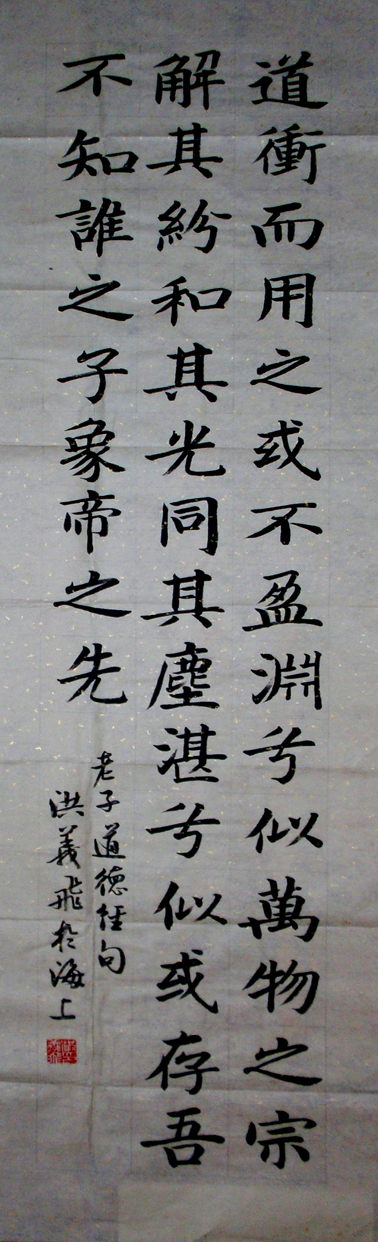 道衝而用之或不盈淵兮似萬物之宗
解其紛和其光同其塵湛兮似或存吾
不知誰之子象帝之先
老子道德經句
洪義飛於海上